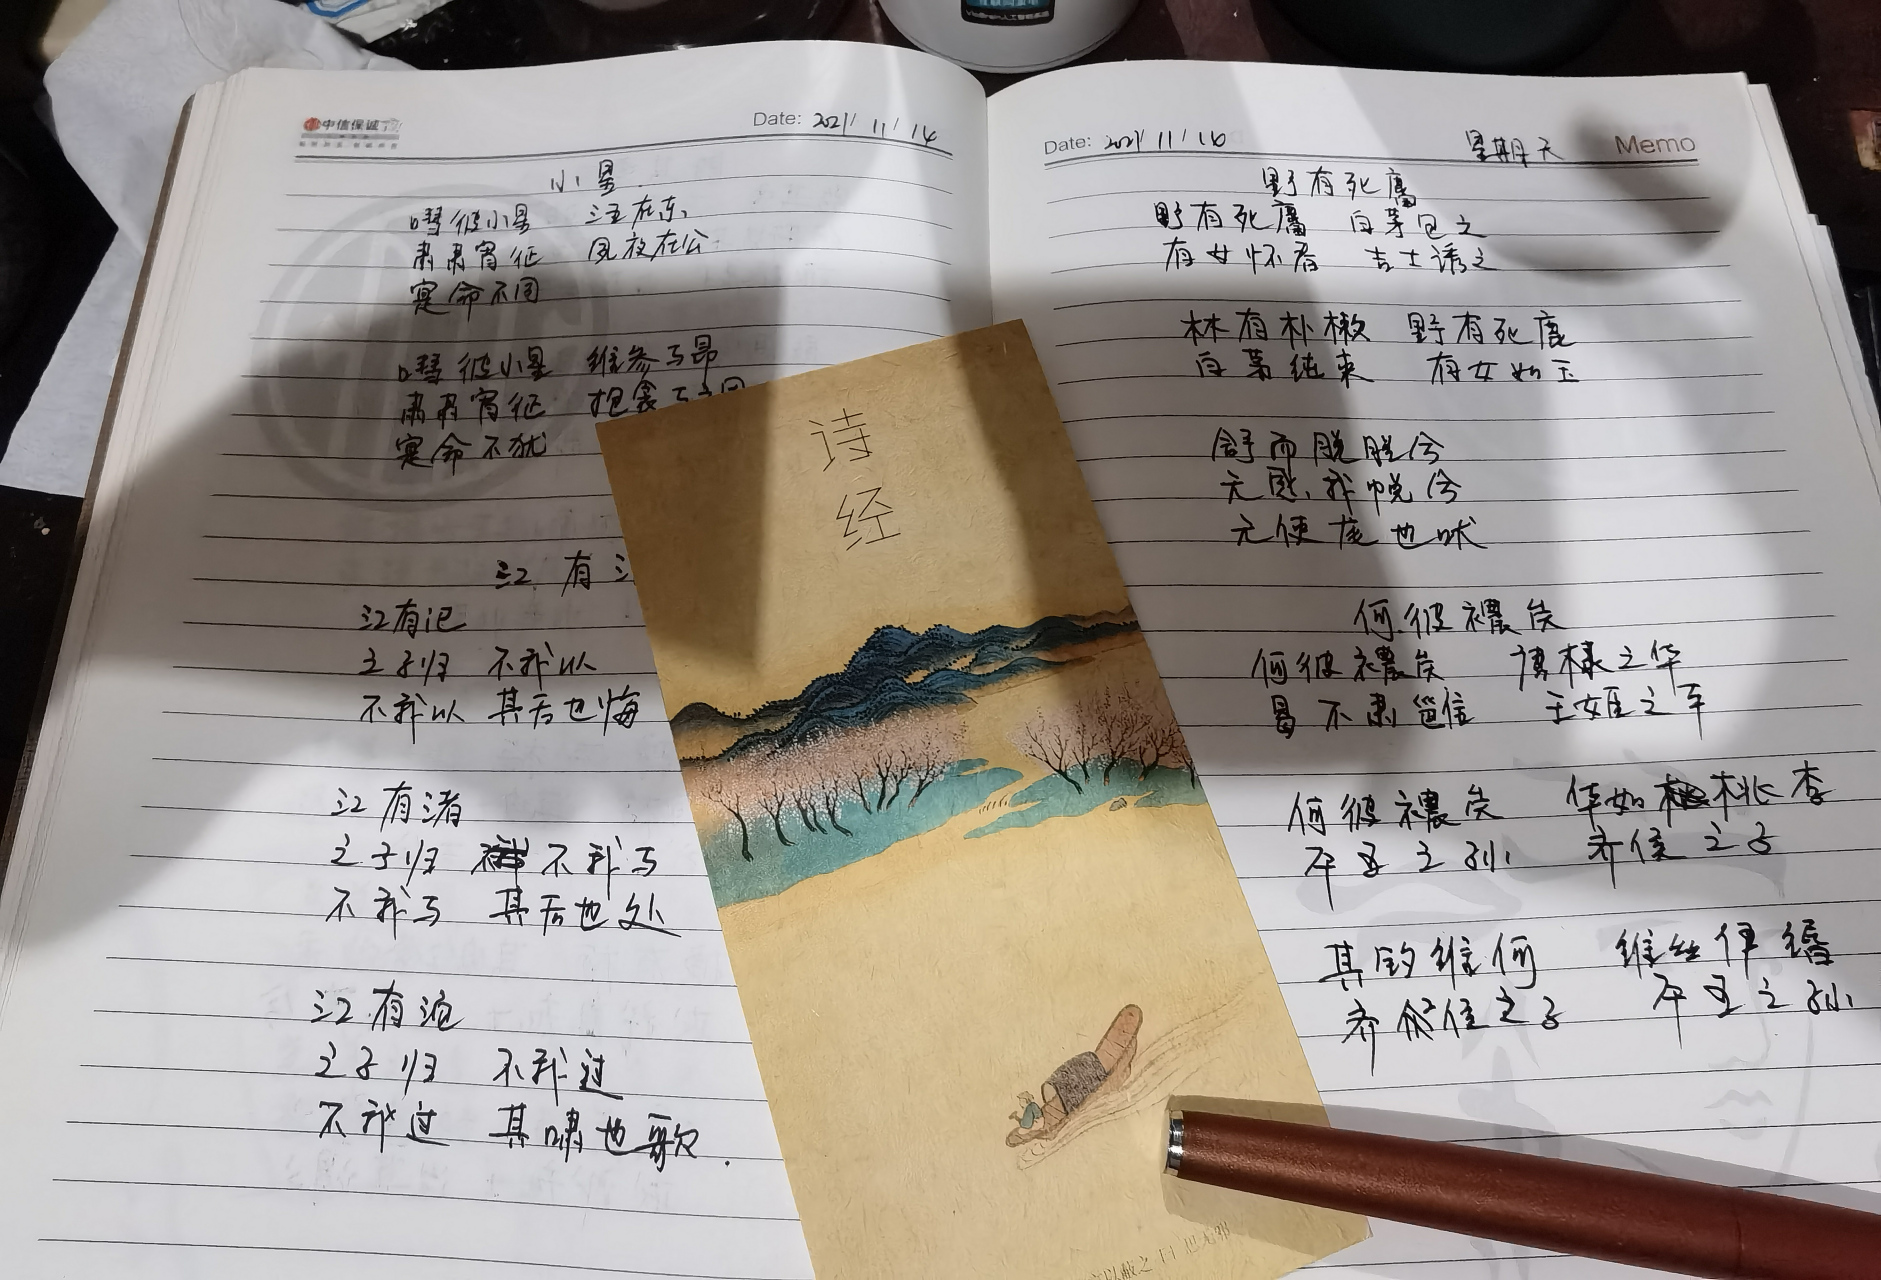 中信保诚
Date: 2021/11/14
小星
嘒彼小星 三五在东
肃肃宵征 夙夜在公
寔命不同
嘒彼小星 维参与昴
肃肃宵征 抱衾与
寔命不犹
江有
江有汜
之子归 不我以
不我以 其后也悔
江有渚
之子归 不我与
不我与 其后也处
江有沱
之子归 不我过
不我过 其啸也歌.
诗
经
Date: 2021/11/14
星期天
Memo
野有死麕
野有死麕 白茅包之
有女怀春 吉士诱之
林有朴樕 野有死鹿
白茅纯束 有女如玉
舒而脱脱兮
无感我帨兮
无使尨也吠
何彼襛矣
何彼襛矣 唐棣之华
曷不肃雝 王姬之车
何彼襛矣 华如桃李
平王之孙 齐侯之子
其钓维何 维丝伊缗
齐侯之子 平王之孙